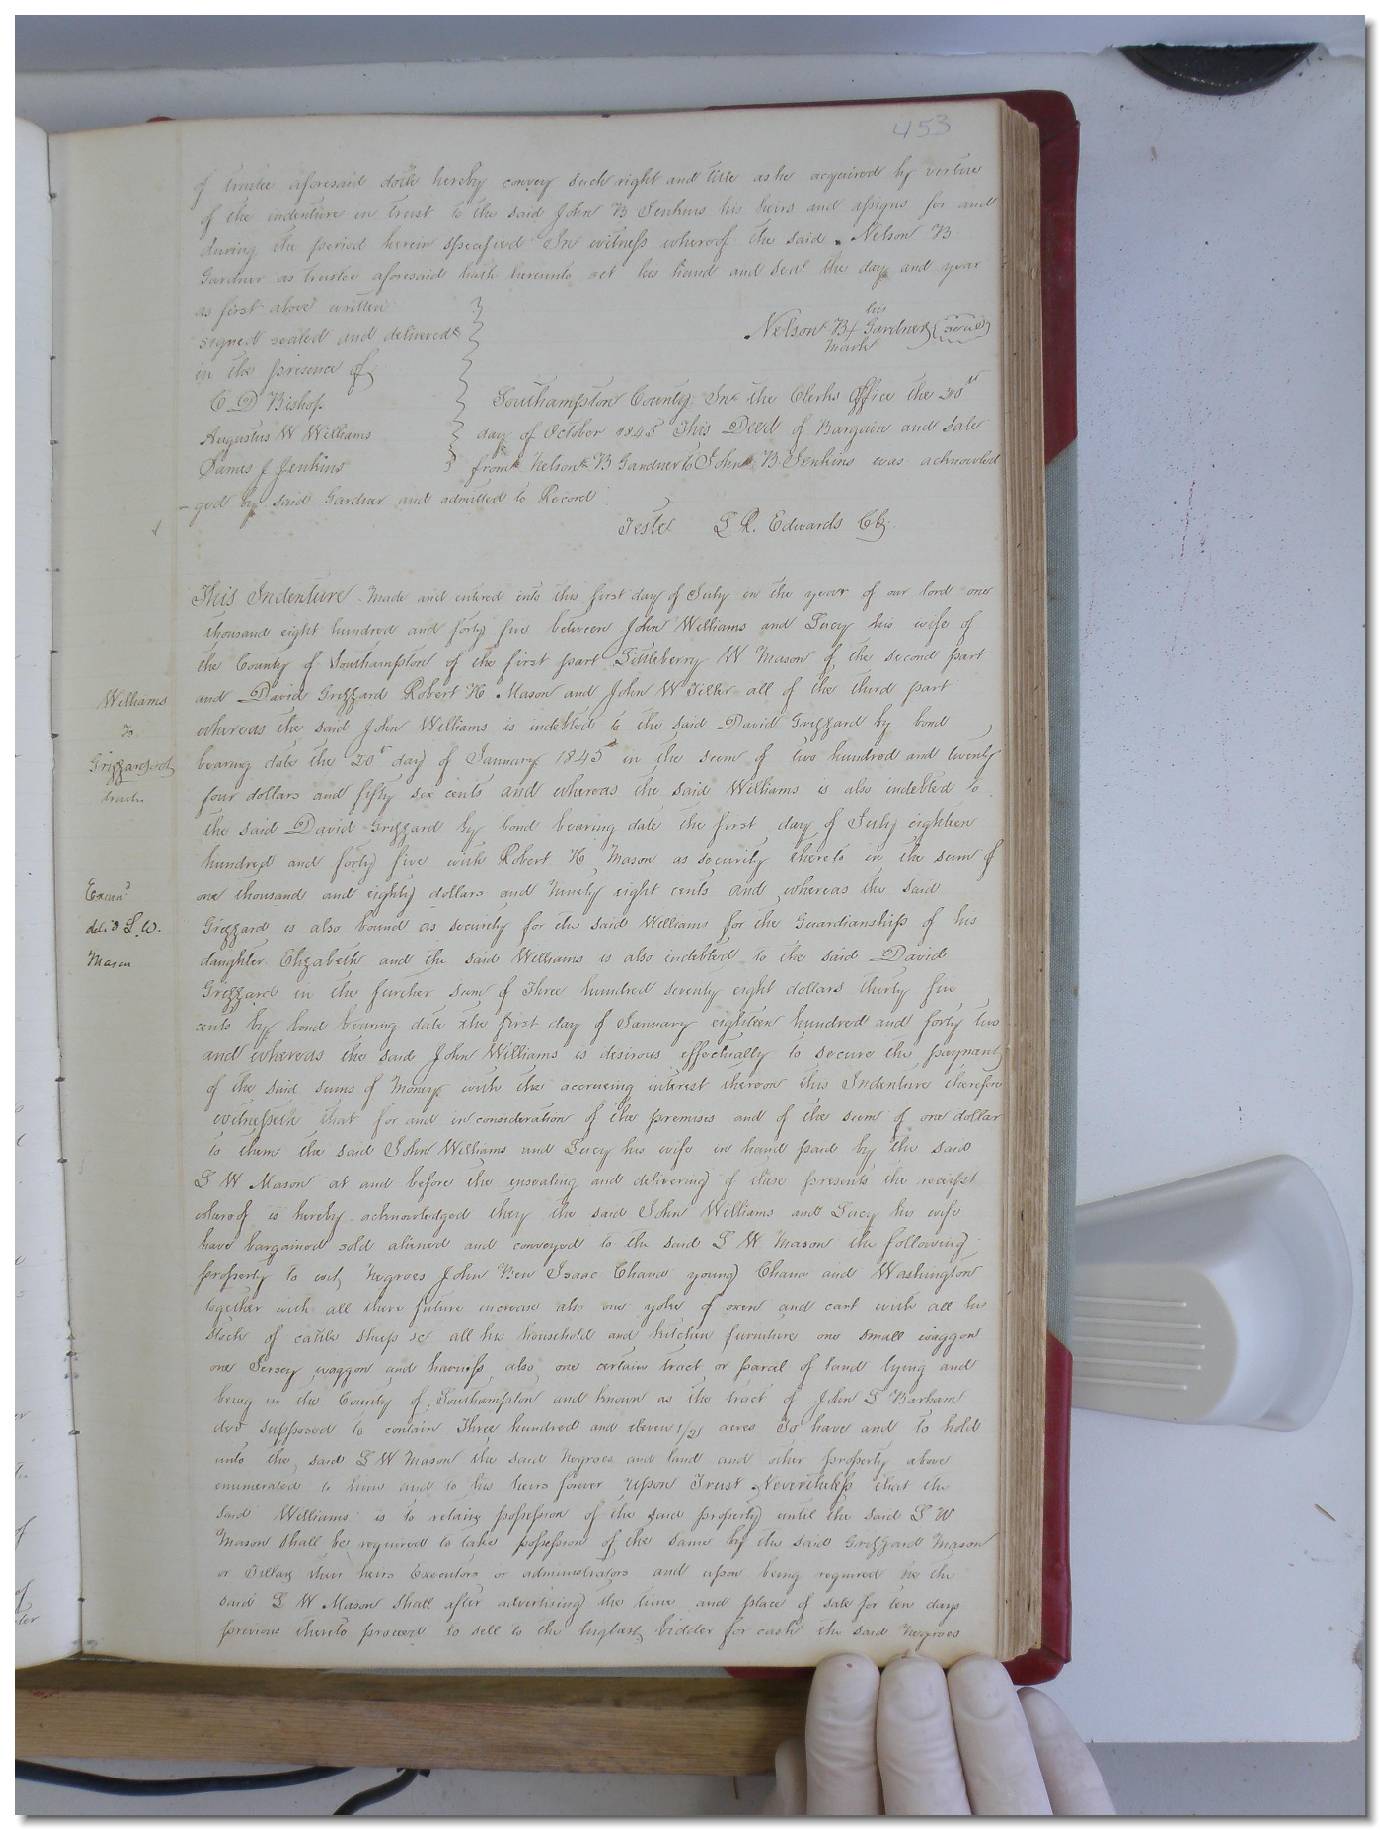 453
of trustee aforesaid doth hereby convey such right and title as he acquired by vertue
of the indenture in trust to the said John B Jenkins his heirs and assigns for and
during the period herein specified In witness whereof the said Nelson B
Gardner as trustee aforesaid hath hereunto set his hand and seal the day and year
as first above written
his
signed sealed and delivered Nelson B X Gardner (seal)
mark
in the presence of
C D Bishop Southampton County In the Clerks Office the 20th
Augustus W Williams day of October 1845 This Deed of Bargain and sale
James J Jenkins from Nelson B Gardner to John B Jenkins was acknowled
-ged by said Gardner and admitted to Record
Teste L R. Edwards Clk
This Indenture Made and entered into this first day of July in the year of our lord one
thousand eight hundred and forty five between John Williams and Lucy his wife of
the County of Southampton of the first part Littleberry W Mason of the second part
Williams and David Grizzard Robert H Mason and John W Tiller all of the third part
to whereas the said John Williams is indebted to the said David Grizzard by bond
Grizzard bearing date the 20th day of January 1845 in the sum of two hundred and twenty
four dollars and fifty six cents and whereas the said Williams is also indebted to
the said David Grizzard by bond bearing date the first day of July eighteen
hundred and forty five with Robert H Mason as security thereto in the sum of
Exam'd one thousand and eighty dollars and Ninety eight cents and whereas the said
del'd L.W. Grizzard is also bound as security for the said Williams for the Guardianship of his
Mason daughter Elizabeth and the said Williams is also indebted to the said David
Grizzard in the further sum of Three hundred seventy eight dollars thirty five
cents by bond bearing date the first day of January eighteen hundred and forty two
and whereas the said John Williams is desirous effectually to secure the payment
of the said sums of Money with the accrueing interest thereon this Indenture therefore
witnesseth that for and in consideration of the premises and of the sum of one dollar
to them the said John Williams and Lucy his wife in hand paid by the said
L W Mason at and before the ensealing and delivering of these presents the receipt
whereof is hereby acknowledged they the said John Williams and Lucy his wife
have bargained sold aliened and conveyed to the said L W Mason the following
property to wit, Negroes John Ben Isaac Chana young Chana and Washington
together with all there future increase also one yoke of oxen and cart with all his
stock of cattle sheep &c all his household and kitchen furniture one small waggon
one Jersey waggon and harness also one certain tract or parcel of land lying and
being in the County of Southampton and known as the tract of John S Barham
decd supposed to contain Three hundred and eleven 1/2 acres To have and to hold
unto the said L W Mason the said Negroes and land and other property above
enumerated to him and to his heirs forever Upon Trust Nevertheless that the
said Williams is to retain possession of the said property until the said L W
Mason shall be required to take possession of the same by the said Grizzard Mason
or their heirs Executors or administrators and upon being required he the
said L W Mason shall after advertising the time and place of sale for ten days
previous thereto proceed to sell to the highest bidder for cash the said Negroes